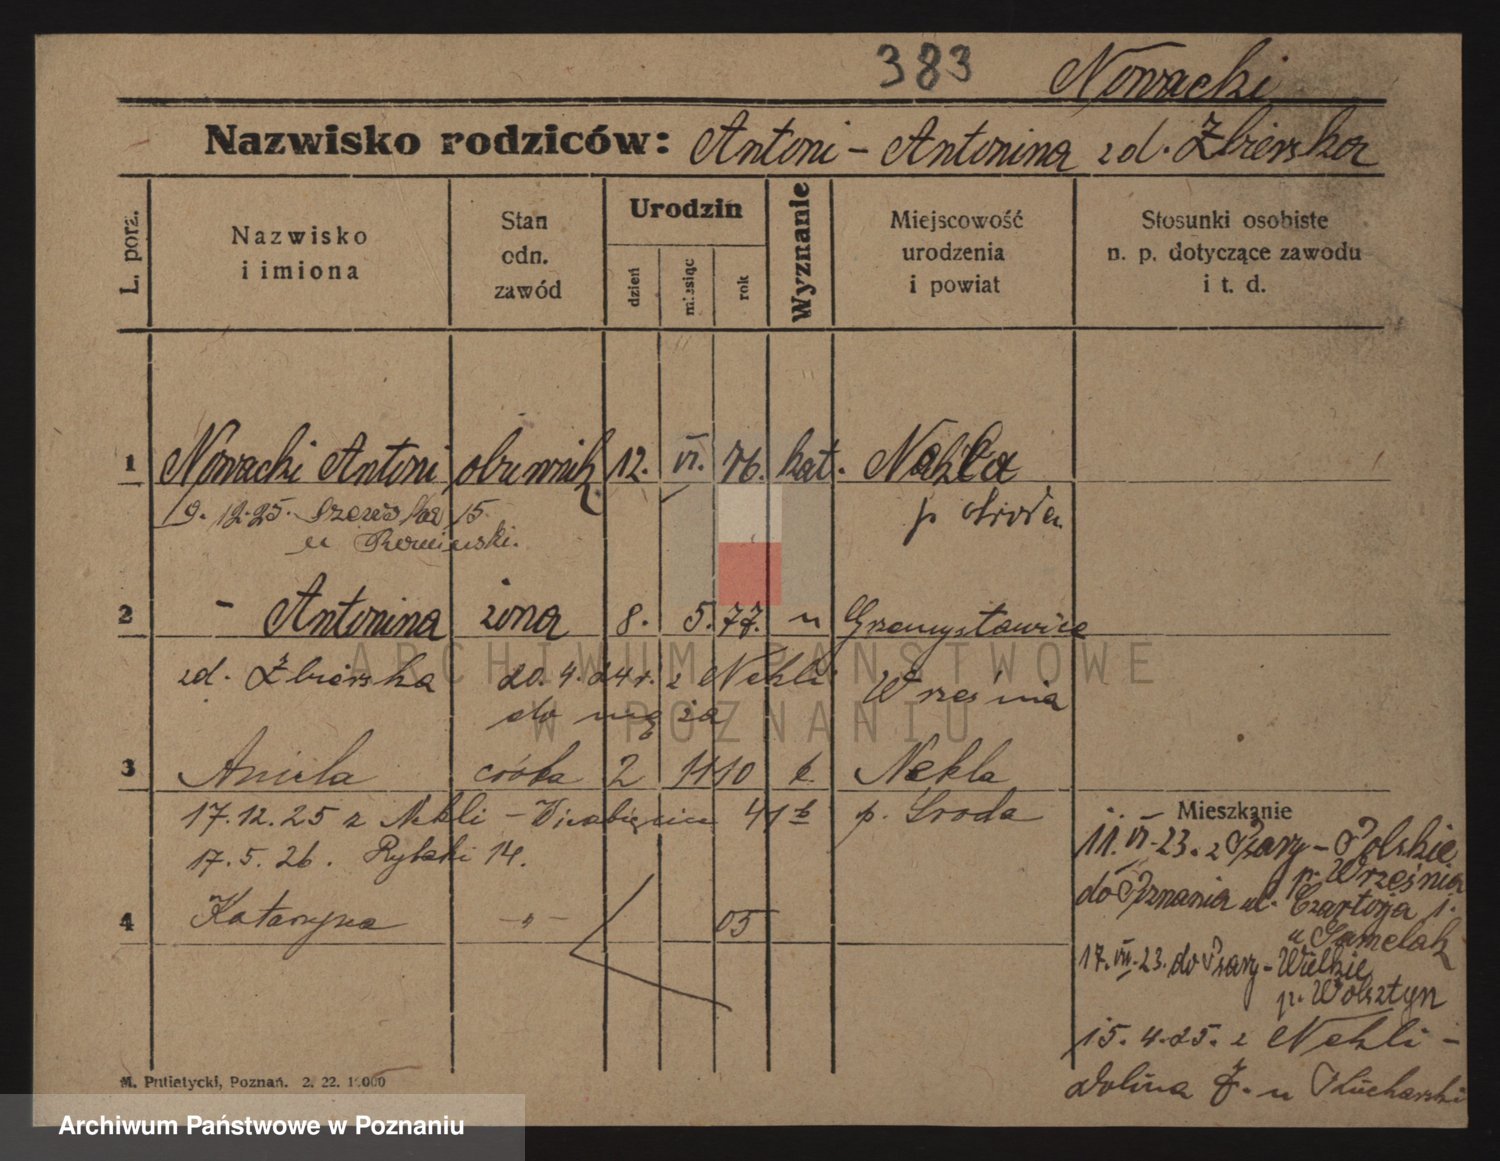 383 Nowacki
Nazwisko rodziców: Antoni - Antonina zd. Żbierska
L. porz.
Nazwisko i imiona
Stan odn. zawód
Urodzin
dzień
miesiąc
rok
Wyznanie
Miejscowość urodzenia i powiat
Stosunki osobiste n. p. dotyczące zawodu i t. d.
1 Nowacki Antoni obuwnik 12. VI. 76. kat. Nekla
9. 12. 25. Szewska 15. p Środa
u
2 - Antonina żona 8. 5. 77. "
zd. Żbierska 20. 4. 24 r. z Nekli Września
do męża
3 Aniela córka 2 11 10 k. Nekla
17. 12. 25 z Nekli - 41 p. Środa
17. 5. 26. Rybaki 14.
4 Katarzyna -"- 05
Mieszkanie
11. VI. 23. z Psary - Polskie
p. Września
do Poznania ul. Czartorja 1.
u Gamelak
17. VII. 23. do Psary - Wielkie
p. Wolsztyn
15. 4. 25. z Nekli -
Dolina 7. u Kucharski
M. Putiatycki, Poznań. 2. 22. 1000
ARCHIWUM PAŃSTWOWE
W POZNANIU
Archiwum Państwowe w Poznaniu